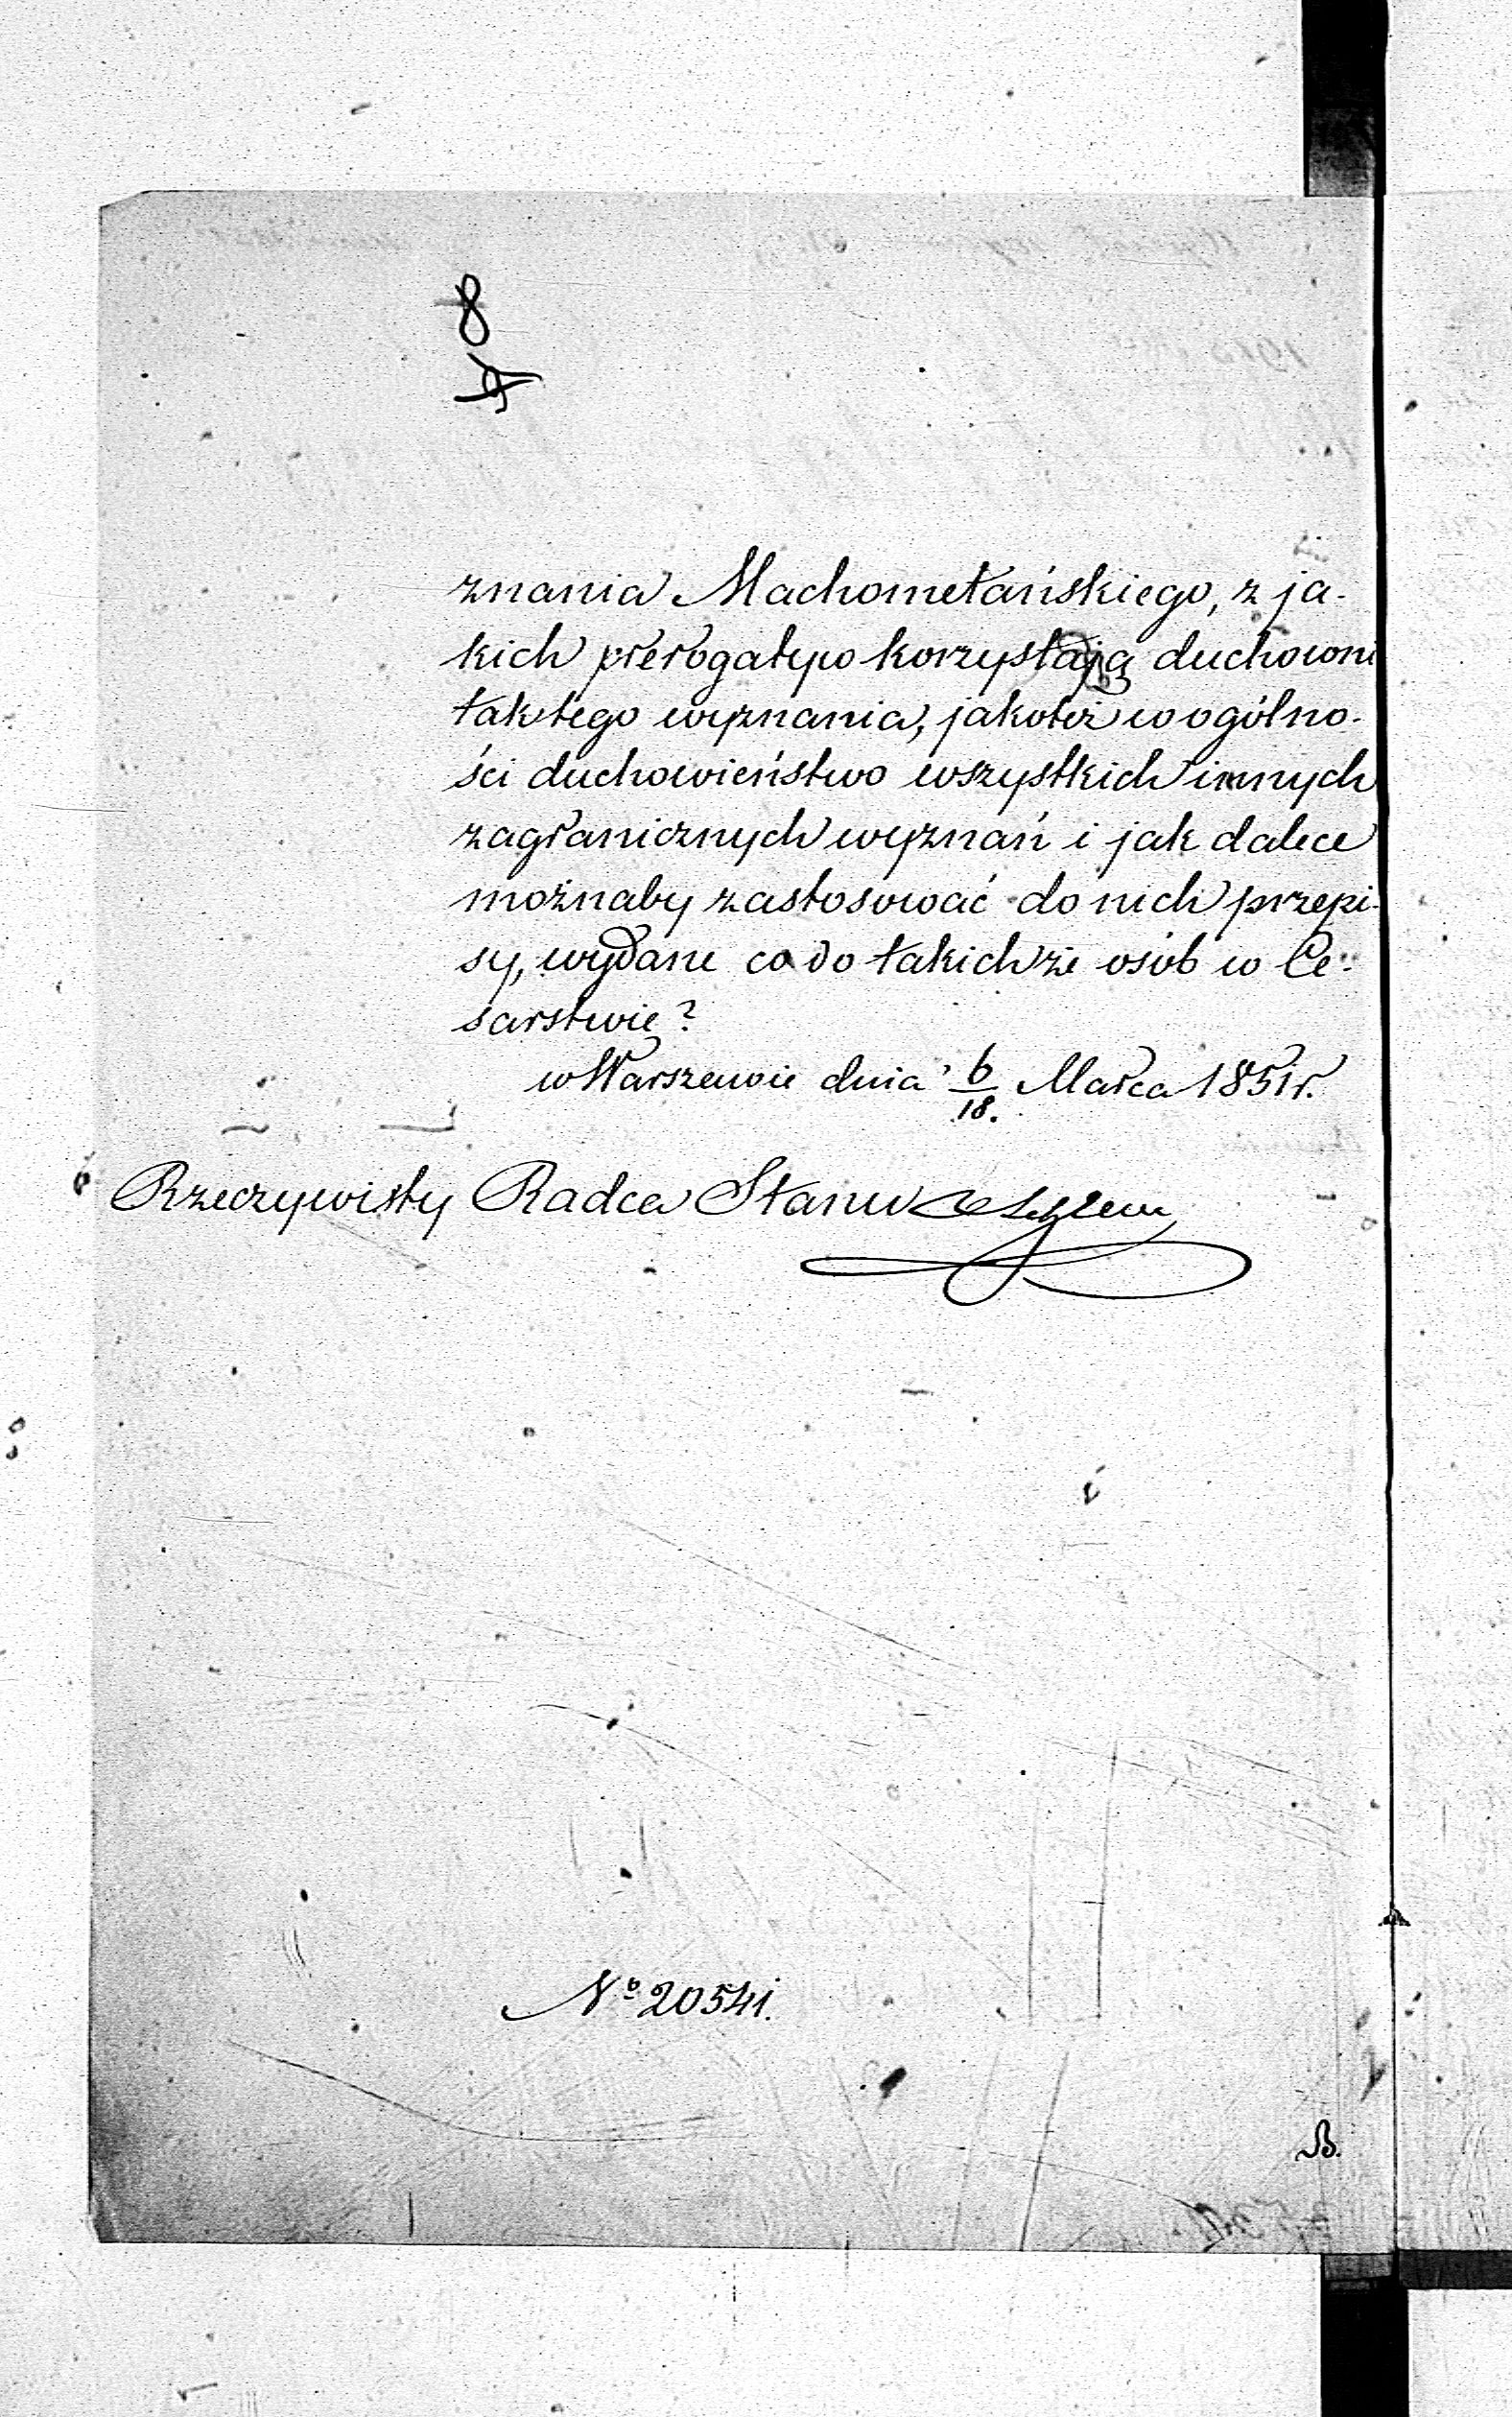 8
znania Machometańskiego, z ja-
kich prerogatyw korzystają duchowni
tak tego wyznania, jakoteż w ogólno-
ści duchowieństwo wszystkich innych
zagranicznych wyznań i jak dalece
możnaby zastosować do nich przepi-
sy, wydane co do takichże osób w Ce-
sarstwie?
w Warszawie dnia 6/18. Marca 1851 r.
Rzeczywisty Radca Stanu
№ 20541.
B.